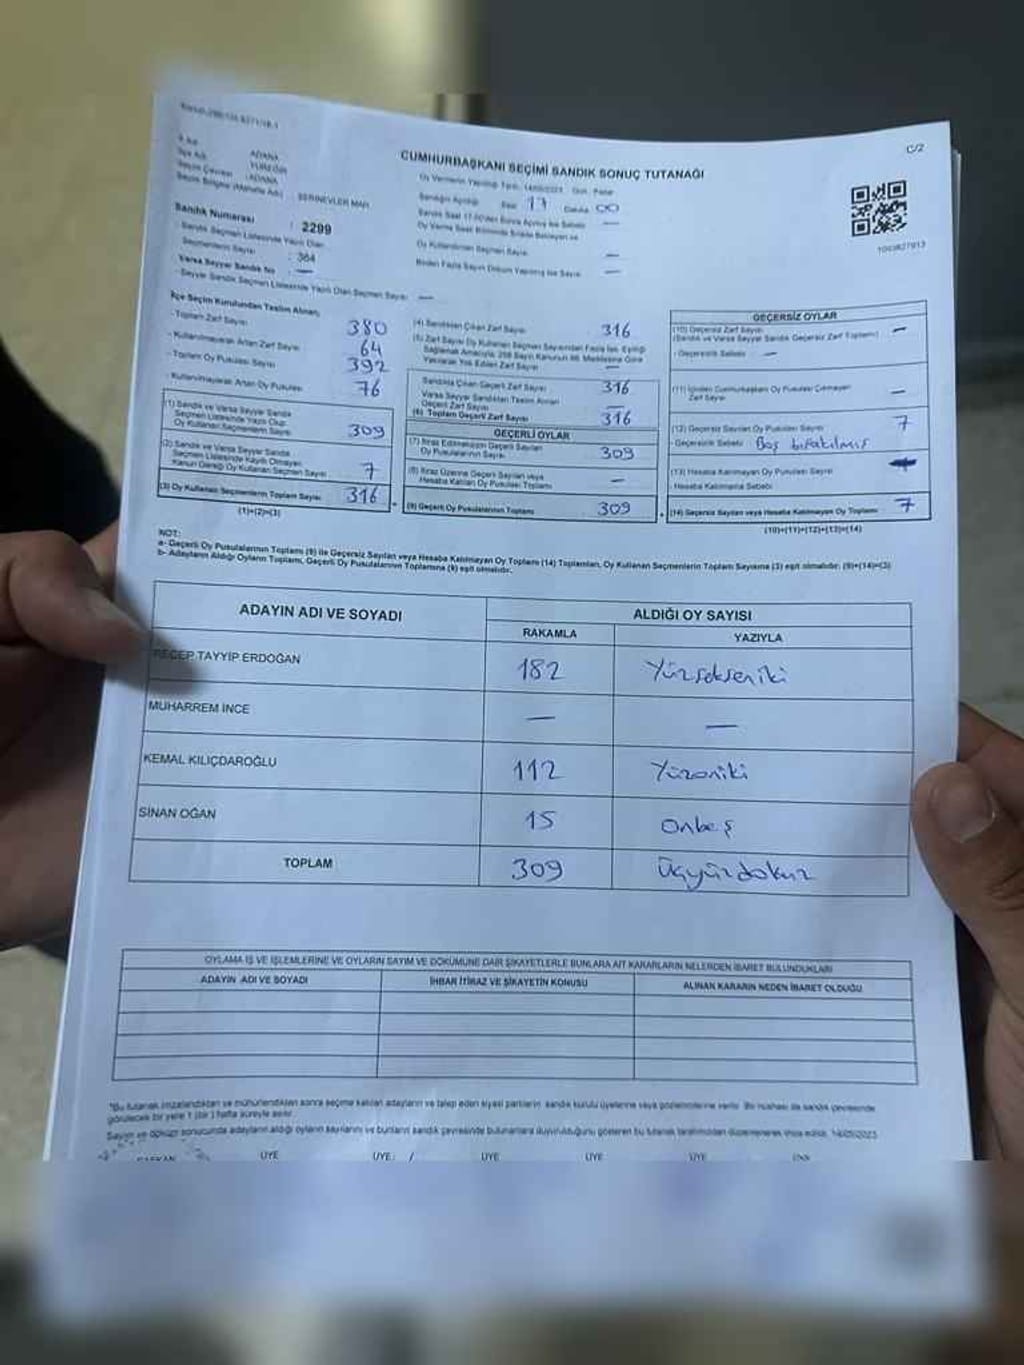 C/2
CUMHURBAŞKANI SEÇİMİ SANDIK SONUÇ TUTANAĞI
İl Adı : ADANA
İlçe Adı : YÜREĞİR
Seçim Çevresi : ADANA
Seçim Bölgesi (Mahalle Adı) : SERİNEVLER MAH.
Sandık Numarası : 2299
- Sandık Seçmen Listesinde Yazılı Olan
Seçmenlerin Sayısı : 364
Varsa Seyyar Sandık No : —
- Seyyar Sandık Seçmen Listesinde Yazılı Olan Seçmen Sayısı : —
Saat 17 Dakika 00
Oy Kullandırılan Seçmen Sayısı —
Birden Fazla Sayım Döküm Yapılmış İse Sayısı —
1003827913
İlçe Seçim Kurulundan Teslim Alınan;
- Toplam Zarf Sayısı 380
- Kullanılmayarak Artan Zarf Sayısı 64
- Toplam Oy Pusulası Sayısı 392
- Kullanılmayarak Artan Oy Pusulası 76
(1) Sandık ve Varsa Seyyar Sandık
Seçmen Listesinde Yazılı Olup
Oy Kullanan Seçmenlerin Sayısı 309
(2) Sandık ve Varsa Seyyar Sandık
Seçmen Listesinde Kayıtlı Olmayan
Kanun Gereği Oy Kullanan Seçmen Sayısı 7
(3) Oy Kullanan Seçmenlerin Toplam Sayısı 316
(1)+(2)=(3)
(4) Sandıktan Çıkan Zarf Sayısı 316
(5) Zarf Sayısı Oy Kullanan Seçmen Sayısından Fazla İse, Eşitliği
Sağlamak Amacıyla, 298 Sayılı Kanunun 98. Maddesine Göre
Yakılarak Yok Edilen Zarf Sayısı —
Sandıkta Çıkan Geçerli Zarf Sayısı 316
Varsa Seyyar Sandıktan Teslim Alınan
Geçerli Zarf Sayısı —
(6) Toplam Geçerli Zarf Sayısı 316
GEÇERLİ OYLAR
(7) İtiraz Edilmeksizin Geçerli Sayılan
Oy Pusulalarının Sayısı 309
(8) İtiraz Üzerine Geçerli Sayılan veya
Hesaba Katılan Oy Pusulası Toplamı —
(9) Geçerli Oy Pusulalarının Toplamı 309
GEÇERSİZ OYLAR
(10) Geçersiz Zarf Sayısı
(Sandık ve Varsa Seyyar Sandık Geçersiz Zarf Toplamı) —
- Geçersizlik Sebebi —
(11) İçinden Cumhurbaşkanı Oy Pusulası Çıkmayan
Zarf Sayısı —
(12) Geçersiz Sayılan Oy Pusulası Sayısı 7
- Geçersizlik Sebebi Boş bırakılmış
(13) Hesaba Katılmayan Oy Pusulası Sayısı
- Hesaba Katılmama Sebebi
(14) Geçersiz Sayılan veya Hesaba Katılmayan Oy Toplamı 7
(10)+(11)+(12)+(13)=(14)
NOT:
a- Geçerli Oy Pusulalarının Toplamı (9) ile Geçersiz Sayılan veya Hesaba Katılmayan Oy Toplamı (14) Toplamları, Oy Kullanan Seçmenlerin Toplam Sayısına (3) eşit olmalıdır. (9)+(14)=(3)
b- Adayların Aldığı Oyların Toplamı, Geçerli Oy Pusulalarının Toplamına (9) eşit olmalıdır.
ADAYIN ADI VE SOYADI ALDIĞI OY SAYISI
RAKAMLA YAZIYLA
RECEP TAYYİP ERDOĞAN 182 Yüzsekseniki
MUHARREM İNCE — —
KEMAL KILIÇDAROĞLU 112 Yüzoniki
SİNAN OĞAN 15 Onbeş
TOPLAM 309 Üçyüzdokuz
OYLAMA İŞ VE İŞLEMLERİNE VE OYLARIN SAYIM VE DÖKÜMÜNE DAİR ŞİKAYETLERLE BUNLARA AİT KARARLARIN NELERDEN İBARET BULUNDUKLARI
ADAYIN ADI VE SOYADI İHBAR İTİRAZ VE ŞİKAYETİN KONUSU ALINAN KARARIN NEDEN İBARET OLDUĞU
*Bu tutanak imzalandıktan ve mühürlendikten sonra seçime katılan adayların ve talep eden siyasi partilerin sandık kurulu üyelerine veya gözlemcilerine verilir. Bir nüshası da sandık çevresinde
görülecek bir yere 1 (bir) hafta süreyle asılır.
Sayım ve döküm sonucunda adayların aldığı oyların sayılarını ve bunların sandık çevresinde bulunanlara duyurulduğunu gösteren bu tutanak tarafımızdan düzenlenerek imza edildi. 14/05/2023
BAŞKAN ÜYE ÜYE ÜYE ÜYE ÜYE